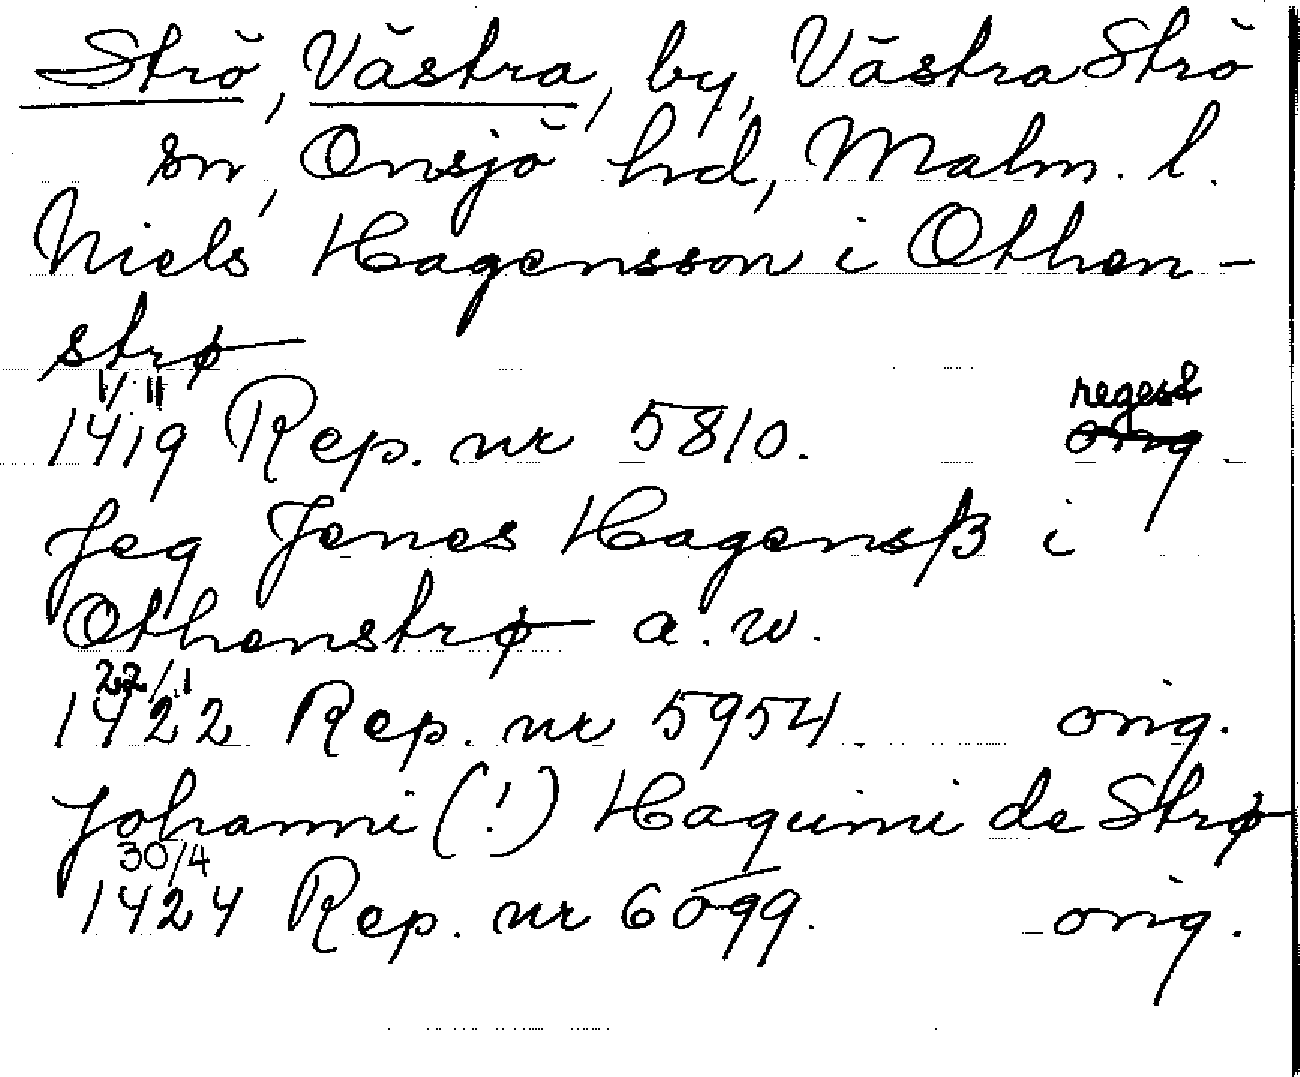 Strö, Västra, by, Västra Strö
sn, Onsjö hd, Malm. l.
Niels Hagensson i Othen-
strø
1/11
1419 Rep. nr 5810. regest
orig.
Jeg Jenes Hagensß i
Othenstrø a. w.
22/1
1422 Rep. nr 5954 orig.
Johanni (!) Haquini de Strø
30/4
1424 Rep. nr 6099. orig.